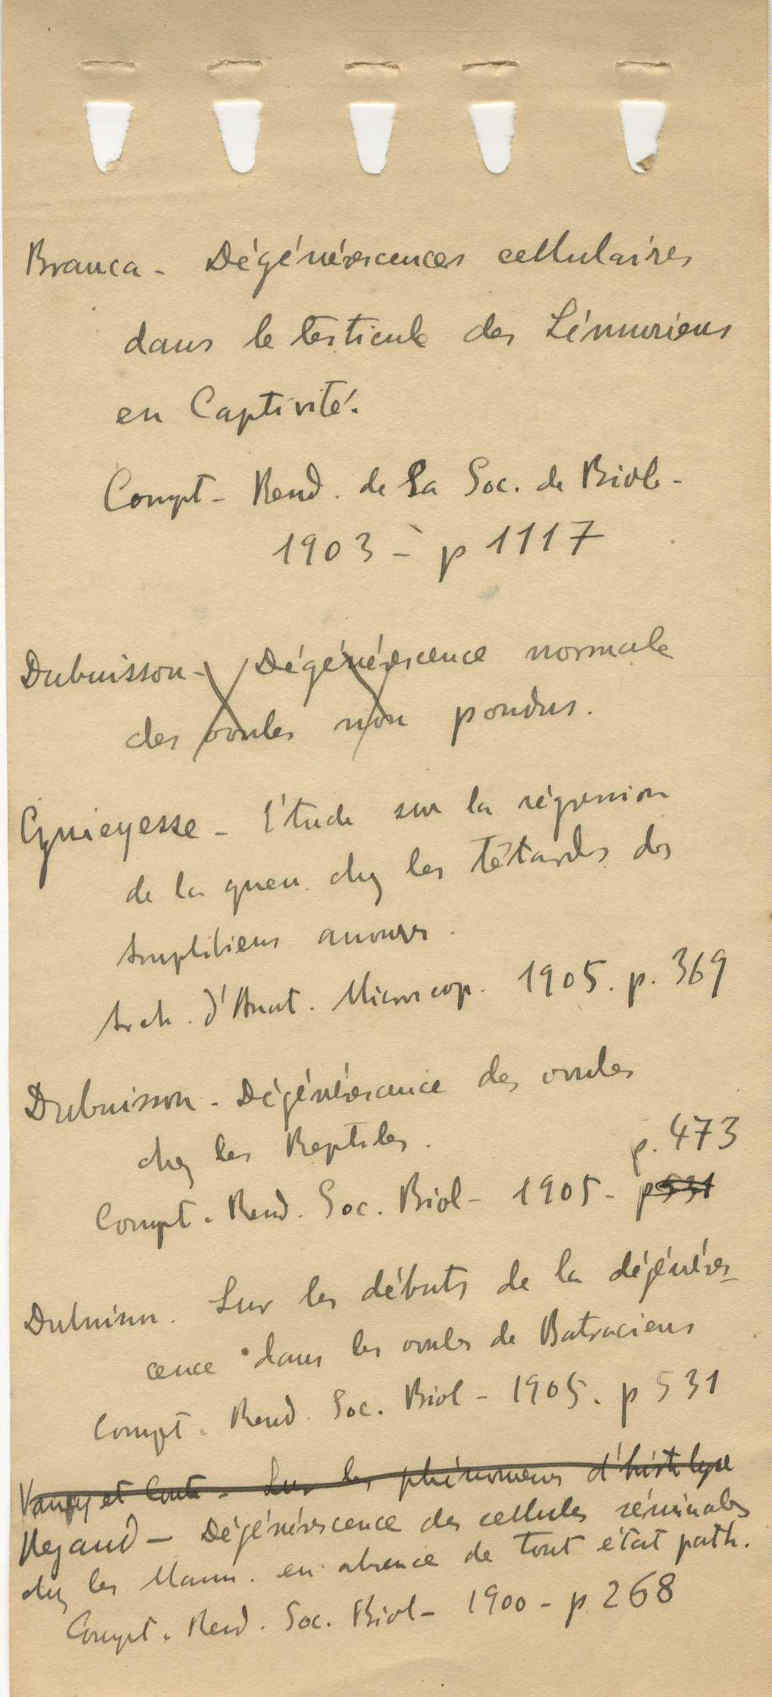 Branca - Dégénérescences cellulaires
dans le testicule des Lémuriens
en Captivité.
Compt - Rend. de la Soc. de Biol -
1903 - p 1117
Dubuisson - Dégénérescence normale
des ovules non pondus.
Guieyesse - Étude sur la régression
de la queue chez les Têtards des
Amphibiens anoures.
Arch. d'Anat. Microscop. 1905. p. 369
Dubuisson - Dégénérescence des ovules
chez les Reptiles. p. 473
Compt. Rend. Soc. Biol - 1905 - p 531
Dubuisson. Sur les débuts de la dégénéres-
cence dans les ovules de Batraciens
Compt. Rend. Soc. Biol - 1905. p 531
Vaney et Conte - Sur les phénomènes d'histolyse
Regaud - Dégénérescence des cellules séminales
chez les Mamm. en absence de tout état path.
Compt. Rend. Soc. Biol - 1900 - p 268